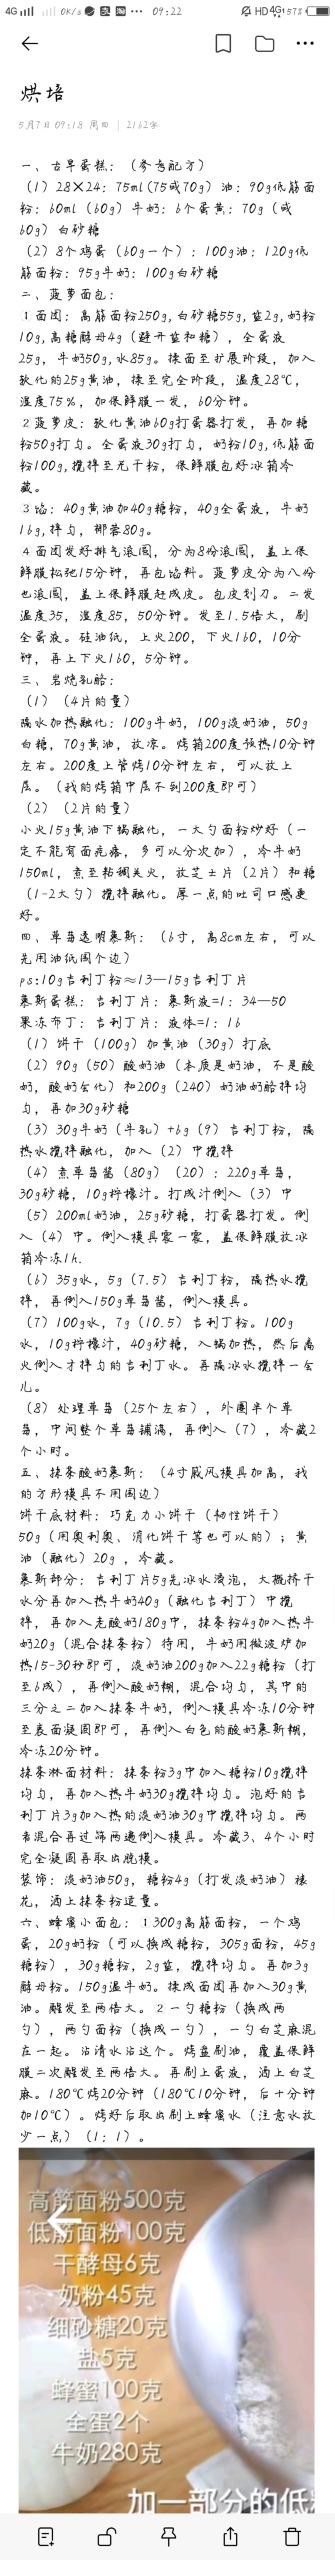 4G 0K/s 09:22 HD 4G 57%
烘培
5月7日 09:18 周四 | 2162字
一、古早蛋糕：（参考配方）
（1）28×24：75ml(75或70g）油：90g低筋面
粉：60ml（60g）牛奶：6个蛋黄：70g（或
60g）白砂糖
（2）8个鸡蛋（60g一个）：100g油：120g低
筋面粉：95g牛奶：100g白砂糖
二、菠萝面包：
①面团：高筋面粉250g,白砂糖55g,盐2g,奶粉
10g,高糖酵母4g（避开盐和糖），全蛋液
25g，牛奶50g,水85g。揉面至扩展阶段，加入
软化的25g黄油，揉至完全阶段，温度28℃，
湿度75％，加保鲜膜一发，60分钟。
②菠萝皮：软化黄油60g打蛋器打发，再加糖
粉50g打匀。全蛋液30g打匀，奶粉10g,低筋面
粉100g,搅拌至无干粉，保鲜膜包好冰箱冷
藏。
③馅：40g黄油加40g糖粉，40g全蛋液，牛奶
16g,拌匀，椰蓉80g。
④面团发好排气滚圆，分为8份滚圆，盖上保
鲜膜松弛15分钟，再包馅料。菠萝皮分为八份
也滚圆，盖上保鲜膜赶成皮。包皮划刀。二发
温度35，湿度85，50分钟。发至1.5倍大，刷
全蛋液。硅油纸，上火200，下火160，10分
钟，再上下火160，5分钟。
三、岩烧乳酪：
（1）（4片的量）
隔水加热融化：100g牛奶，100g淡奶油，50g
白糖，70g黄油，放凉。烤箱200度预热10分钟
左右。200度上管烤10分钟左右，可以放上
层。（我的烤箱中层不到200度即可）
（2）（2片的量）
小火15g黄油下锅融化，一大勺面粉炒好（一
定不能有面疙瘩，多可以分次加），冷牛奶
150ml，煮至粘稠关火，放芝士片（2片）和糖
（1-2大勺）搅拌融化。厚一点的吐司口感更
好。
四、草莓透明慕斯：（6寸，高8cm左右，可以
先用油纸围个边）
ps:10g吉利丁粉≈13—15g吉利丁片
慕斯蛋糕：吉利丁片：慕斯液=1：34—50
果冻布丁：吉利丁片：液体=1：16
（1）饼干（100g）加黄油（30g）打底
（2）90g（50）酸奶油（本质是奶油，不是酸
奶，酸奶会化）和200g（240）奶油奶酪拌均
匀，再加30g砂糖
（3）30g牛奶（牛乳）+6g（9）吉利丁粉，隔
热水搅拌融化，加入（2）中搅拌
（4）煮草莓酱（80g）（20）：220g草莓，
30g砂糖，10g柠檬汁。打成汁倒入（3）中
（5）200ml奶油，25g砂糖，打蛋器打发。倒
入（4）中。倒入模具震一震，盖保鲜膜放冰
箱冷冻1h.
（6）35g水，5g（7.5）吉利丁粉，隔热水搅
拌，再倒入150g草莓酱，倒入模具。
（7）100g水，7g（10.5）吉利丁粉。100g
水，10g柠檬汁，40g砂糖，入锅加热，然后离
火倒入才拌匀的吉利丁水。再隔冰水搅拌一会
儿。
（8）处理草莓（25个左右），外圈半个草
莓，中间整个草莓铺满，再倒入（7），冷藏2
个小时。
五、抹茶酸奶慕斯：（4寸戚风模具加高，我
的方形模具不用围边）
饼干底材料：巧克力小饼干（韧性饼干）
50g（用奥利奥、消化饼干等也可以的）；黄
油（融化）20g ，冷藏。
慕斯部分：吉利丁片5g先冰水浸泡，大概挤干
水分再加入热牛奶40g（融化吉利丁）中搅
拌，再加入老酸奶180g中，抹茶粉4g加入热牛
奶20g（混合抹茶粉）待用，牛奶用微波炉加
热15-30秒即可，淡奶油200g加入22g糖粉（打
至6成），再倒入酸奶糊，混合均匀，其中的
三分之二加入抹茶牛奶，倒入模具冷冻10分钟
至表面凝固即可，再倒入白色的酸奶慕斯糊，
冷冻20分钟。
抹茶淋面材料：抹茶粉3g中加入糖粉10g搅拌
均匀，再加入热牛奶30g搅拌均匀。泡好的吉
利丁片3g加入热的淡奶油30g中搅拌均匀。两
者混合再过筛两遍倒入模具。冷藏3、4个小时
完全凝固再取出脱模。
装饰：淡奶油50g，糖粉4g（打发淡奶油）裱
花，洒上抹茶粉适量。
六、蜂蜜小面包：①300g高筋面粉，一个鸡
蛋，20g奶粉（可以换成糖粉，305g面粉，45g
糖粉），30g糖粉，2g盐，搅拌均匀。再加3g
酵母粉。150g温牛奶。揉成面团再加入30g黄
油。醒发至两倍大。②一勺糖粉（换成两
勺），两勺面粉（换成一勺），一勺白芝麻混
在一起。沾清水沾这个。烤盘刷油，覆盖保鲜
膜二次醒发至两倍大。再刷上蛋液，洒上白芝
麻。180℃烤20分钟（180℃10分钟，后十分钟
加10℃）。烤好后取出刷上蜂蜜水（注意水放
少一点）（1：1）。
高筋面粉500克
低筋面粉100克
干酵母6克
奶粉45克
细砂糖20克
盐5克
蜂蜜100克
全蛋2个
牛奶280克
加一部分的低